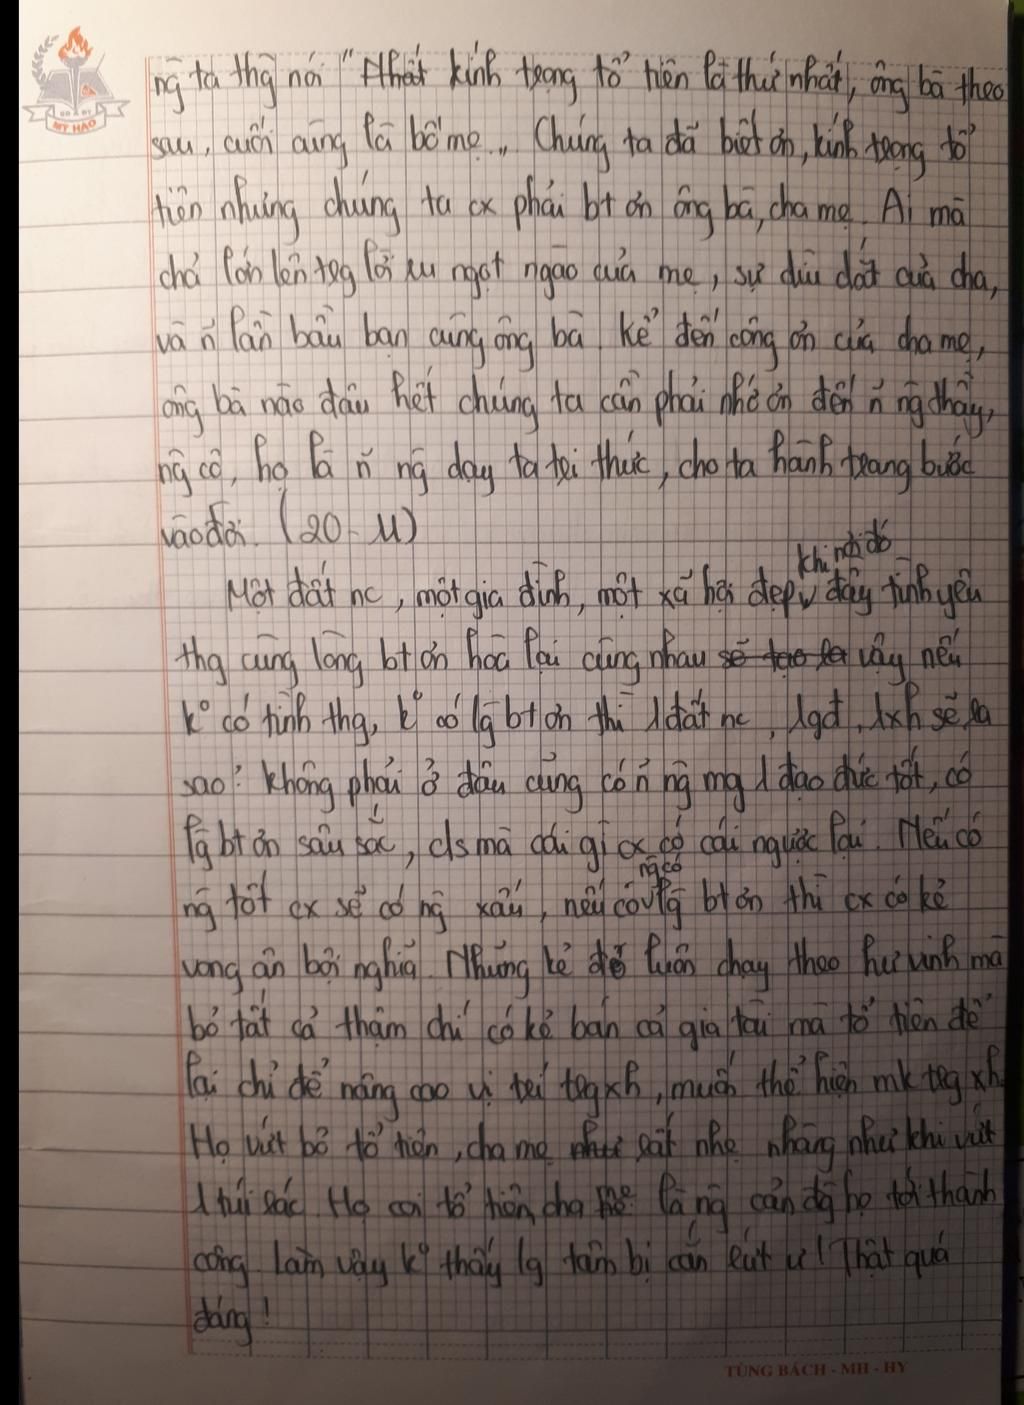 MỸ HÀO
ng̃ ta thg̃ nói "Nhất kính trọng tổ tiên là thứ nhất, ông bà theo
sau, cuối cùng là bố mẹ„ Chúng ta đã biết ơn, kính trọng tổ
tiên nhưng chúng ta cx phải bt ơn ông bà, cha mẹ. Ai mà
chả lớn lên tzg lời ru ngọt ngào của mẹ, sự dìu dắt của cha,
và ñ lần bầu bạn cùng ông bà. Kể đến công ơn của cha mẹ,
ông bà nào đâu hết chúng ta cần phải nhớ ơn đến ñ ng̃ thầy,
ng̃ cô, họ là ñ ng̃ dạy ta tri thức, cho ta hành trang bước
vào đời. (20 - 11)
khi nơi đó
Một đất nc, một gia đình, một xã hội đẹp v đầy tình yêu
thg cùng lòng bt ơn hòa lại cùng nhau sẽ tạo ra vậy nếu
k° có tình thg, k° có lg̃ bt ơn thì 1 đất nc, 1gđ, 1xh sẽ ra
sao? Không phải ở đâu cũng có ñ ng̃ mg 1 đạo đức tốt, có
lg̃ bt ơn sâu sắc, cls mà cái gì cx có cái ngược lại. Nếu có
ng̃ có
ng̃ tốt cx sẽ có ng̃ xấu, nếu có v lg̃ bt ơn thì cx có kẻ
vong ân bội nghĩa. Những kẻ đó luôn chạy theo hư vinh mà
bỏ tất cả thậm chí có kẻ bán cả gia tài mà tổ tiên để
lại chỉ để nâng cao vị trí tzg xh, muốn thể hiện mk tzg xh
Họ vứt bỏ tổ tiên, cha mẹ như rất nhẹ nhàng như khi vứt
1 túi rác. Họ coi tổ tiên, cha mẹ là ng̃ cản đg̃ họ tới thành
công. Làm vậy k° thấy lg tâm bị cắn rứt ư! Thật quá
đáng!
TÙNG BÁCH - MH - HY